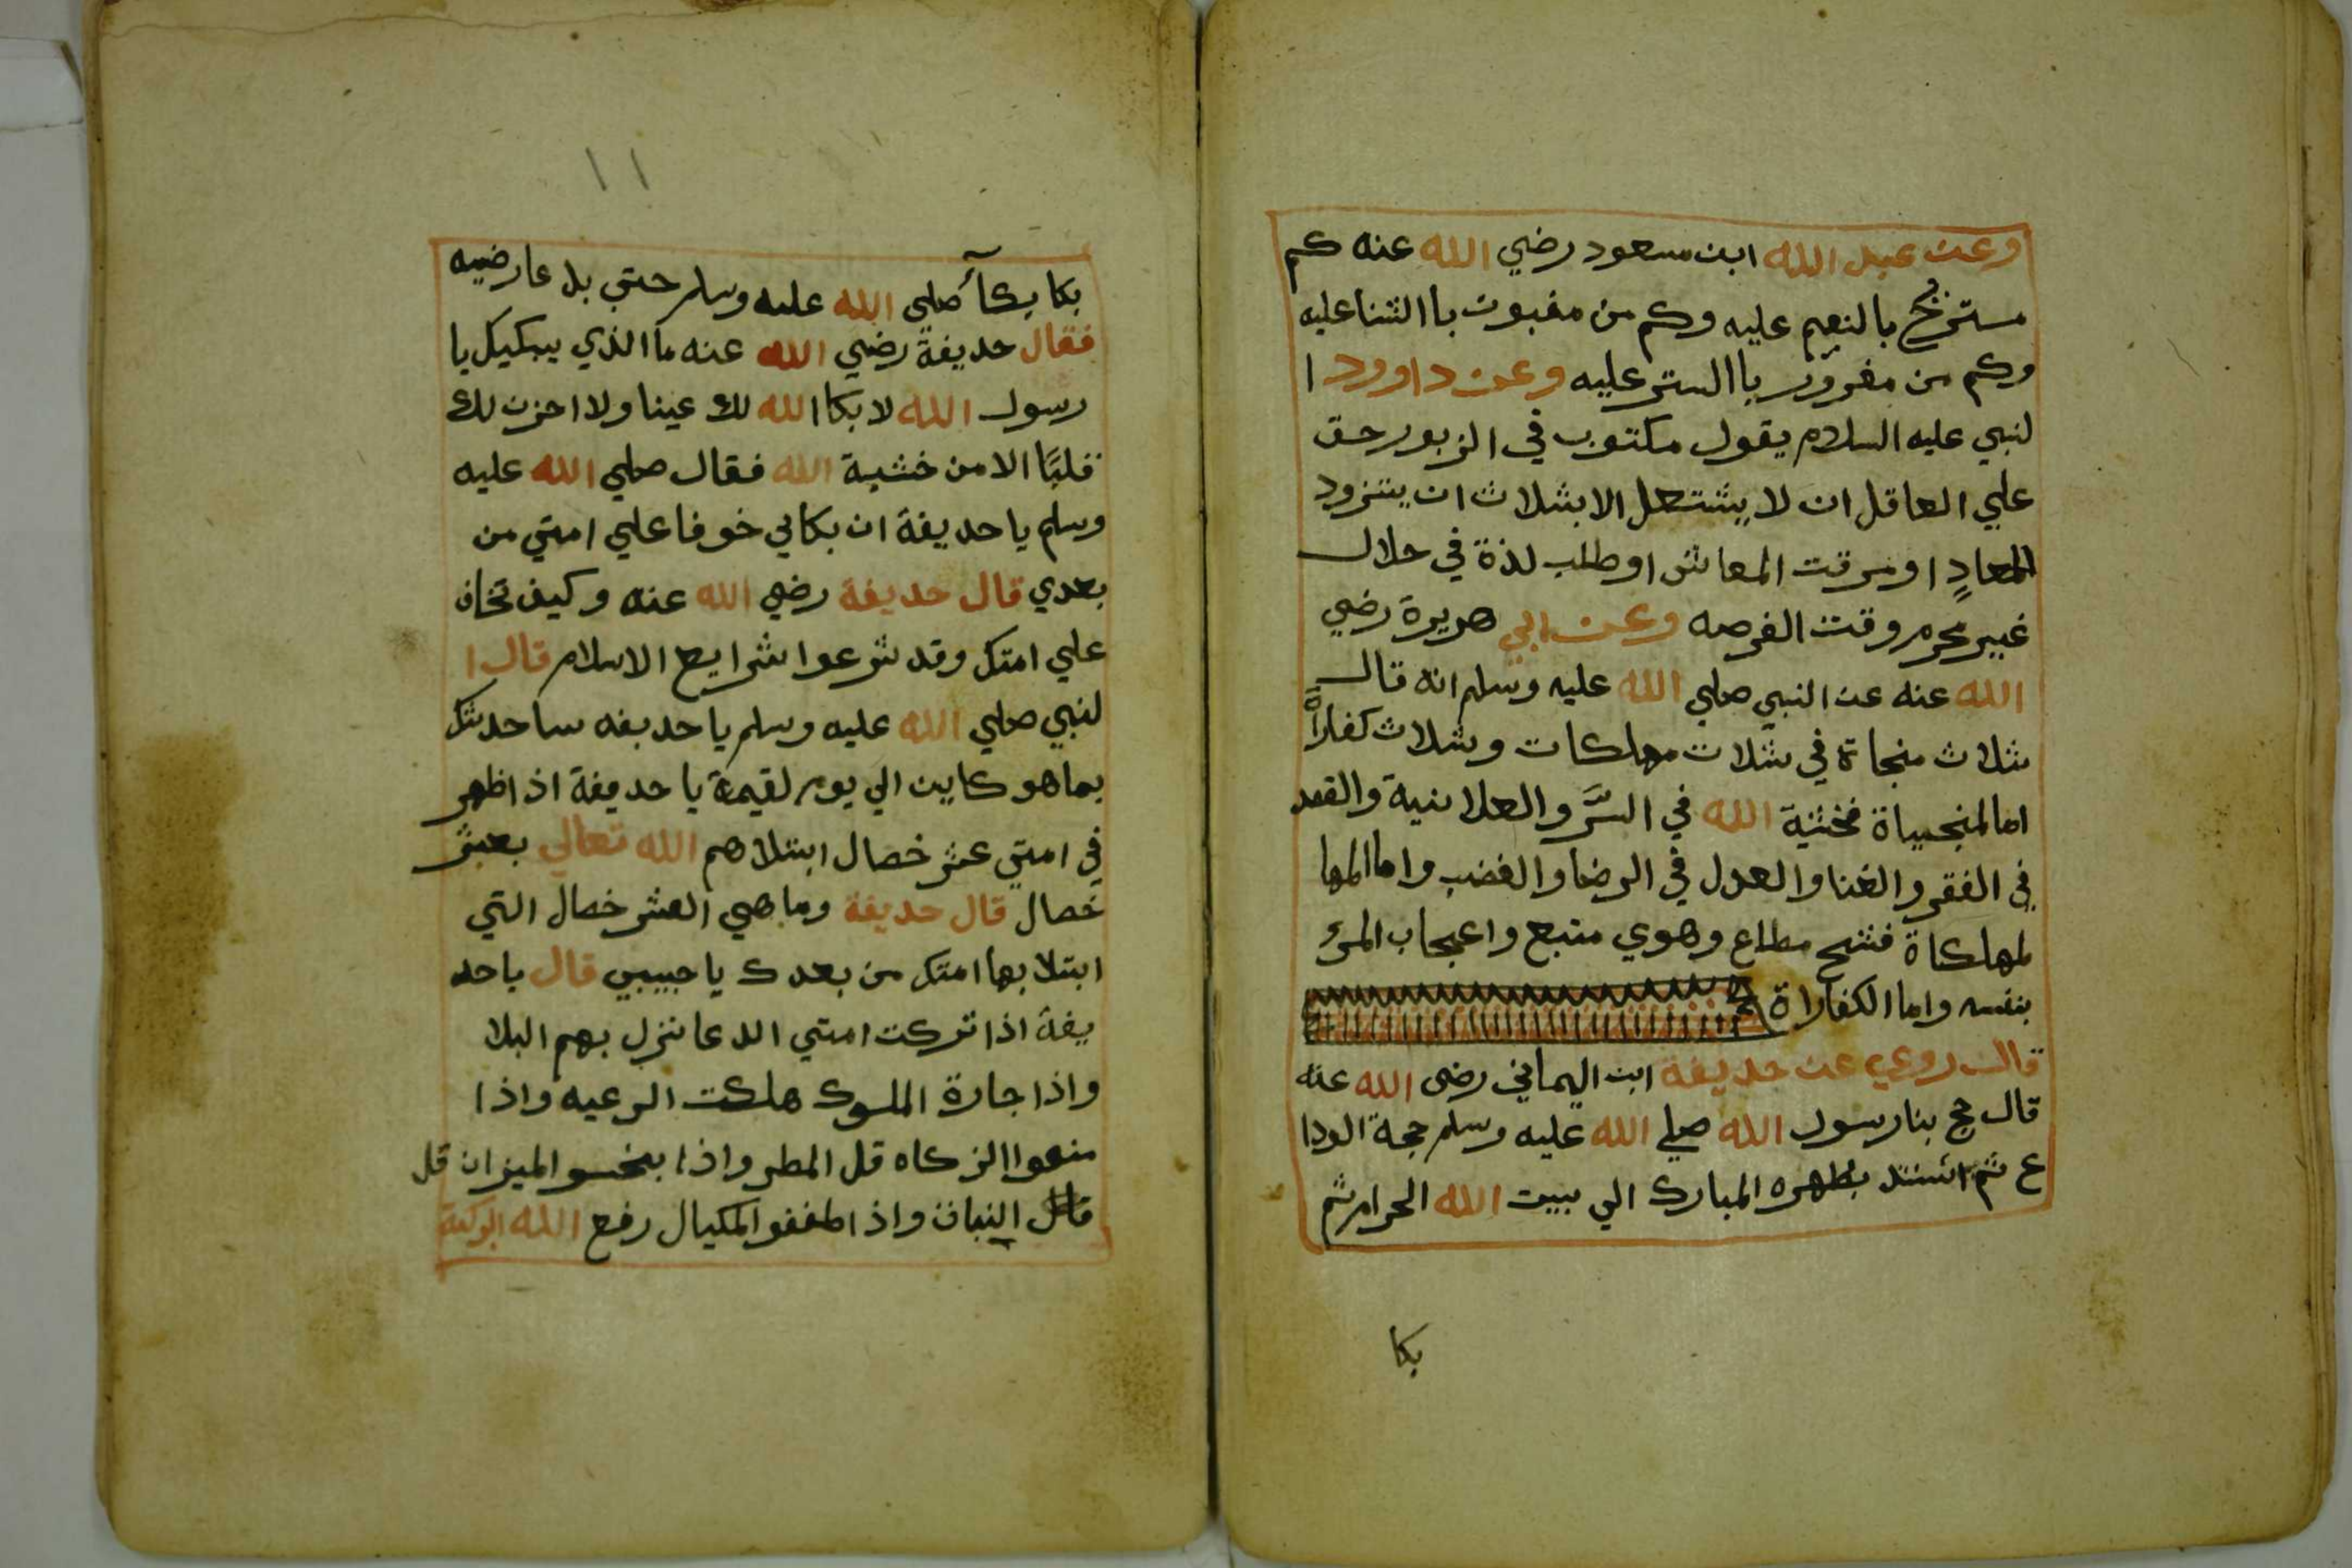 وعن عبد الله ابن مسعود رضي الله عنه كم
مستدرج بالنعم عليه وكم من مغبون باالثنا عليه
وكم من مغرور باالستر عليه وعن داوود ا
لنبي عليه السلام يقول مكتوب في الزبور حق
علي العاقل ان لا يشتغل الا بثلاث ان يتزود
المعاد او مرقت المعاش او طلب لذة في حلال
غير محرم وقت الفرصه وعن ابي هريرة رضي
الله عنه عن النبي صلي الله عليه وسلم انه قال
ثلاث منجاة في ثلاث مهلكات وثلاث كفاراة
اما المنجياة فخشية الله في السر والعلانية والقصد
في الفقر والغنا والعدل في الرضا والغضب واما المها
لمهلكاة فشح مطاع وهوي متبع واعجاب المرء
بنفسه واما الكفاراة
قال روي عن حديفة ابن اليماني رضي الله عنه
قال حج بنا رسول الله صلي الله عليه وسلم حجة الودا
ع ثم استند بظهره المبارك الي بيت الله الحرام ثم
بكا
١١
بكا بكآء صلي الله عليه وسلم حتي بل عارضيه
فقال حديفة رضي الله عنه ما الذي يبكيك يا
رسول الله لا بكا الله لك عينا ولا احزن لك
قلبا الا من خشية الله فقال صلي الله عليه
وسلم يا حديفة ان بكاي خوفا علي امتي من
بعدي قال حديفة رضي الله عنه وكيف تخاف
علي امتك وقد شرعوا شرايع الاسلام قال ا
لنبي صلي الله عليه وسلم يا حديفه ساحدثك
بما هو كاين الي يوم لقيمة يا حديفة اذ اظهر
في امتي عشر خصال ابتلاهم الله تعالي بعشر
خصال قال حديفة وما هي العشر خصال التي
ابتلا بها امتك من بعدك يا حبيبي قال يا حد
يفة اذا تركت امتي الدعا نزل بهم البلا
واذا جارة الملوك هلكت الرعيه واذا
منعوا الزكاه قل المطر واذا بخسو الميزان قل
النبات واذ اطففو المكيال رفع الله البركة